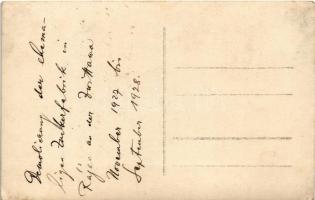 Demolierung der ehema-
ligen Zuckerfabrik in
Rájec an der Zwittawa
November 1927 bis
September 1928.